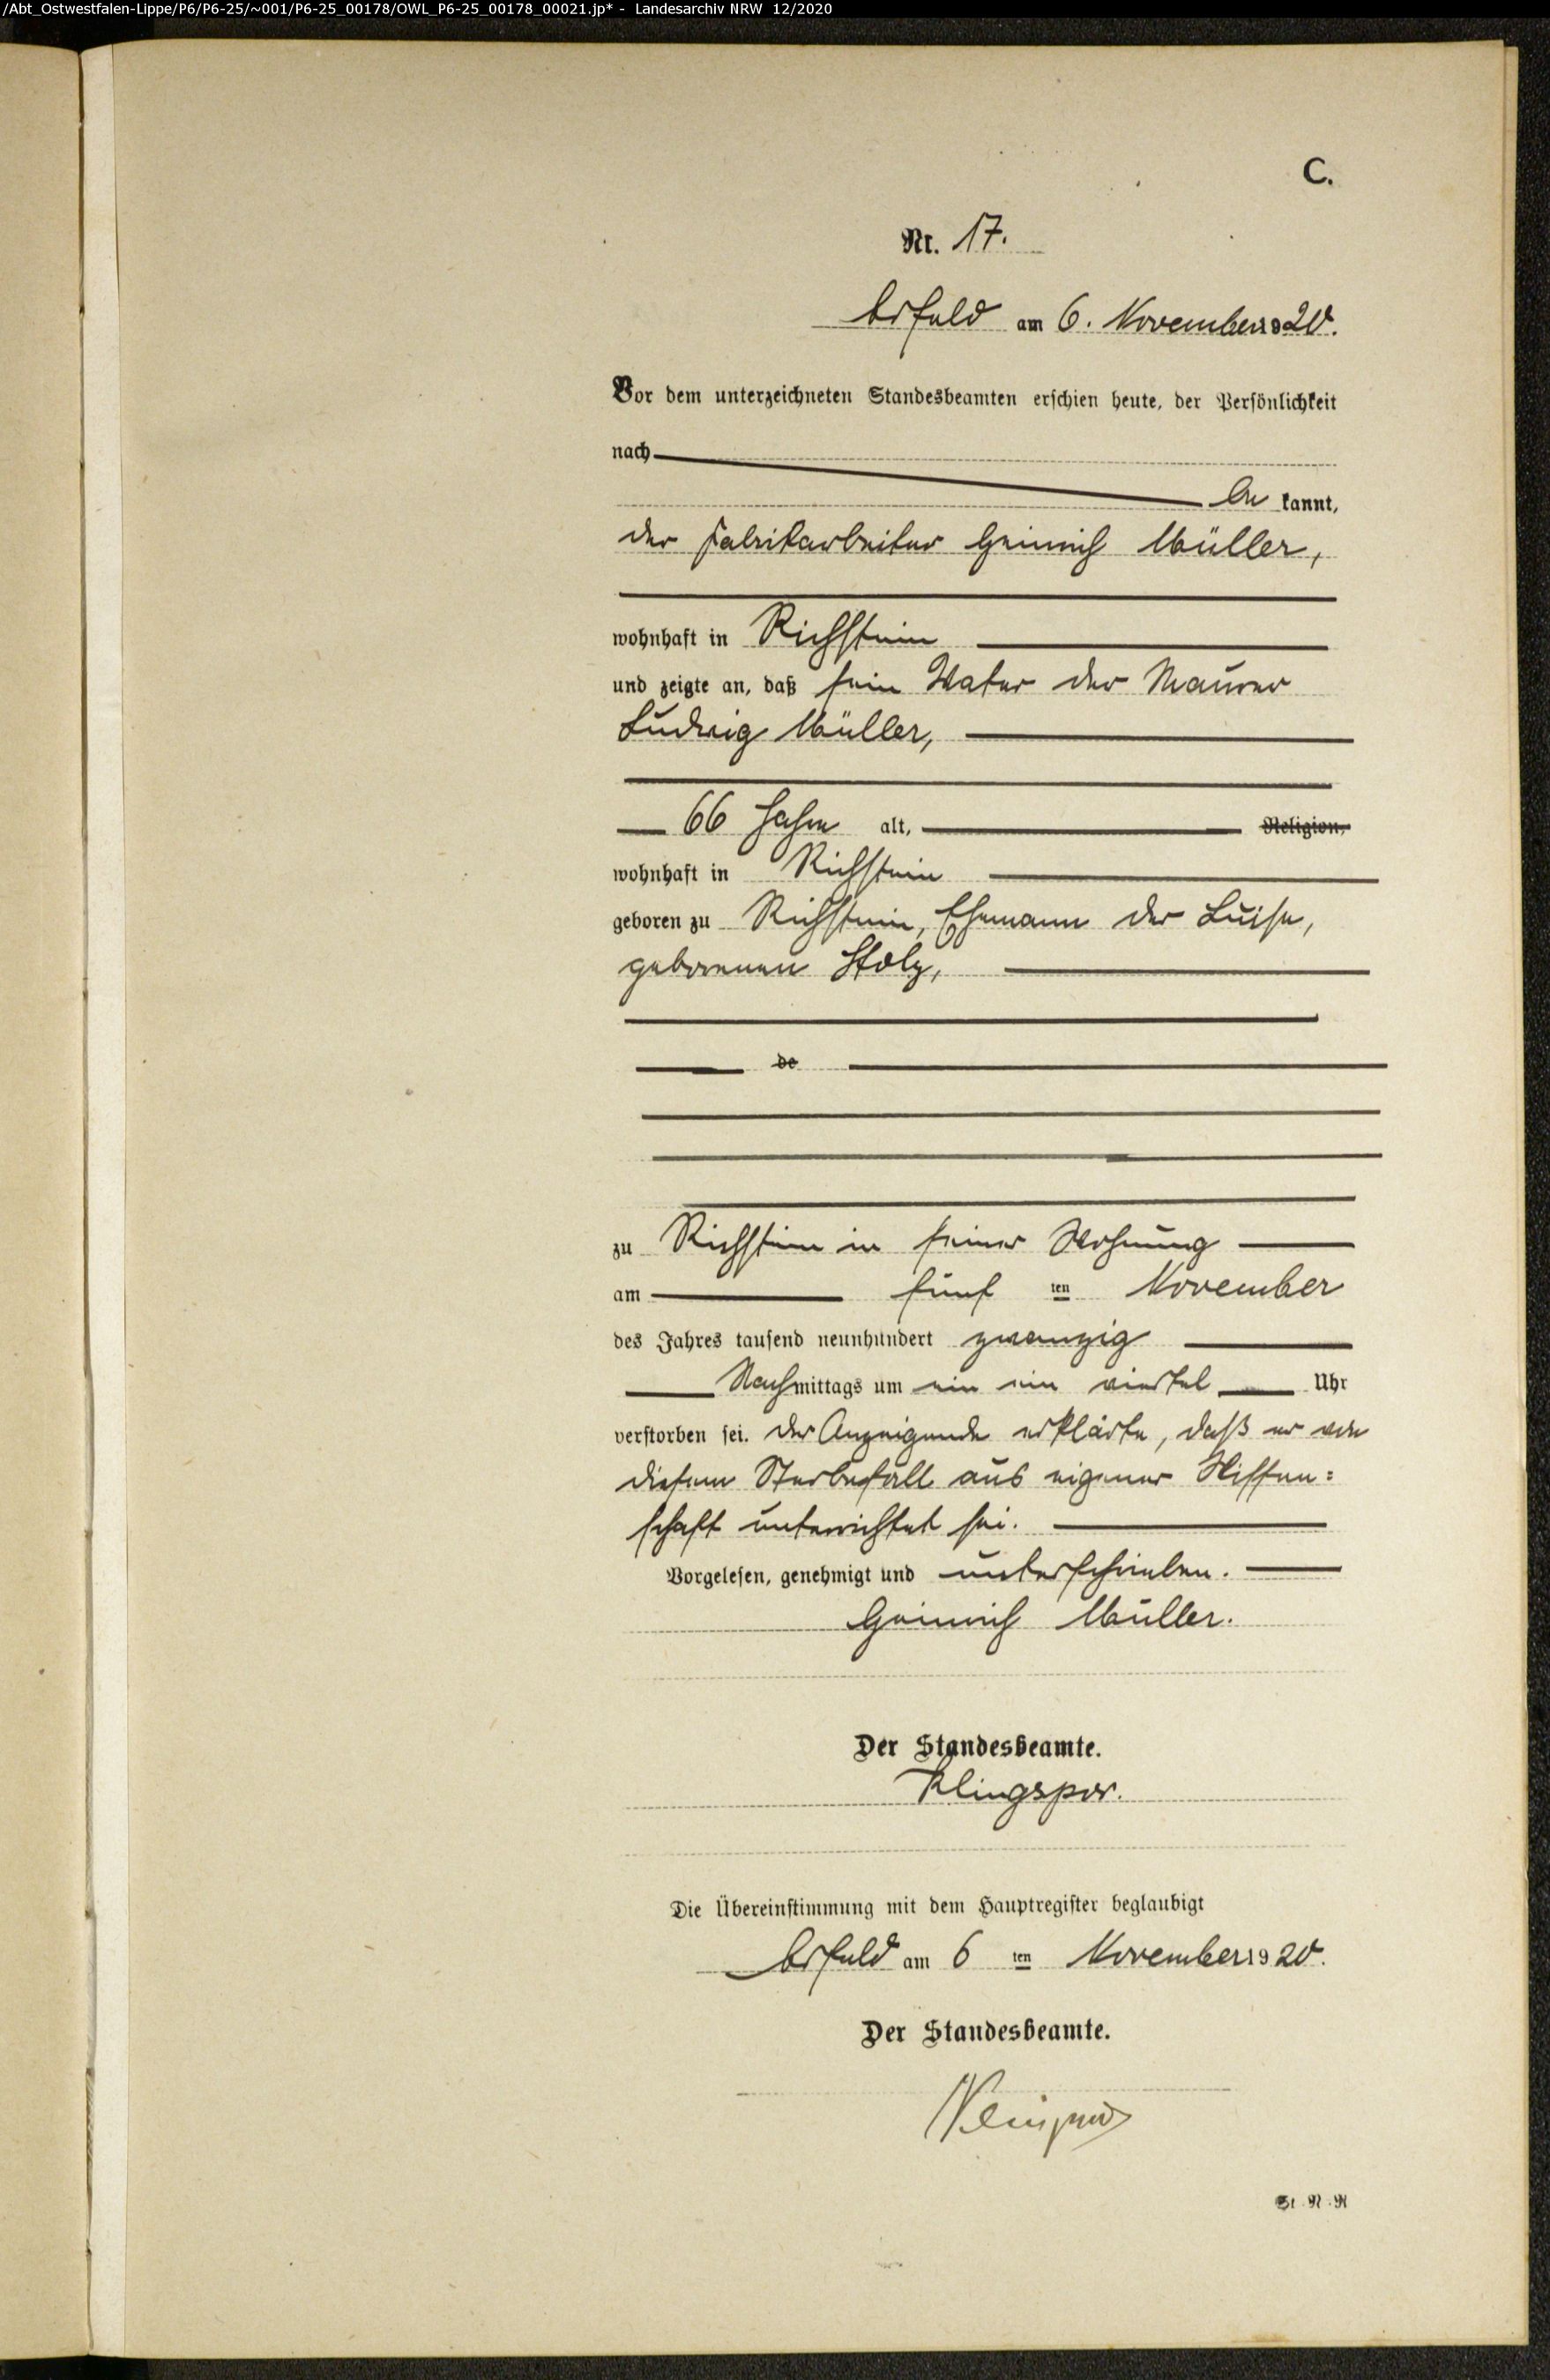 /Abt_Ostwestfalen-Lippe/P6/P6-25/~001/P6-25_00178/OWL_P6-25_00178_00021.jp* - Landesarchiv NRW 12/2020
C.
Nr. 17.
Arfeld am 6. November 1920.
Vor dem unterzeichneten Standesbeamten erschien heute, der Persönlichkeit
nach
be kannt,
der Fabrikarbeiter Heinrich Müller,
wohnhaft in Richstein
und zeigte an, daß sein Vater der Maurer
Ludwig Müller,
66 Jahre alt, Religion,
wohnhaft in Richstein
geboren zu Richstein, Ehemann der Luise,
geborenen Stolz,
de
zu Richstein in seiner Wohnung
am fünf ten November
des Jahres tausend neunhundert zwanzig
Nachmittags um ein ein viertel Uhr
verstorben sei. Der Anzeigende erklärte, daß er von
diesem Sterbefall aus eigener Wissen=
schaft unterrichtet sei.
Vorgelesen, genehmigt und unterschrieben.
Heinrich Müller.
Der Standesbeamte.
Klingspor.
Die Übereinstimmung mit dem Hauptregister beglaubigt
Arfeld am 6 ten November 1920.
Der Standesbeamte.
Klingspor
St. N. N